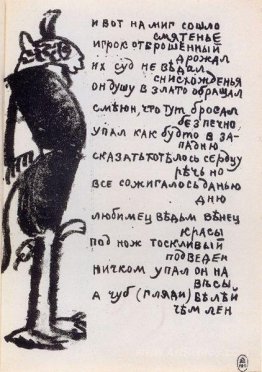 И ВОТ НА МИГ СОШЛО
СМЯТЕНЬЕ
ИГРОК ОТБРОШЕННЫЙ
ДРОЖАЛ
ИХ СУД НЕ ВѢДАЛ
СНИСХОЖДЕНЬЯ
ОН ДУШУ В ЗЛАТО ОБРАЩАЛ
СМѢЮН, ЧТО ТУТ БРОСАЛ
БЕЗПЕЧНО,
УПАЛ КАК БУДТО В ЗА-
ПАДНЮ
СКАЗАТЬ ХОТѢЛОСЬ СЕРДЦУ
РѢЧЬ НО
ВСЕ СОЖИГАЛОСЬ ДАНЬЮ
ДНЮ
ЛЮБИМЕЦ ВѢДЬМ ВѢНЕЦ
КРАСЫ
ПОД НОЖ ТОСКЛИВЫЙ
ПОДВЕДЕН
НИЧКОМ УПАЛ ОН НА
ВѢСЫ
А ЧУБ (ГЛЯДИ) БѢЛѢЙ
ЧѢМ ЛЕН